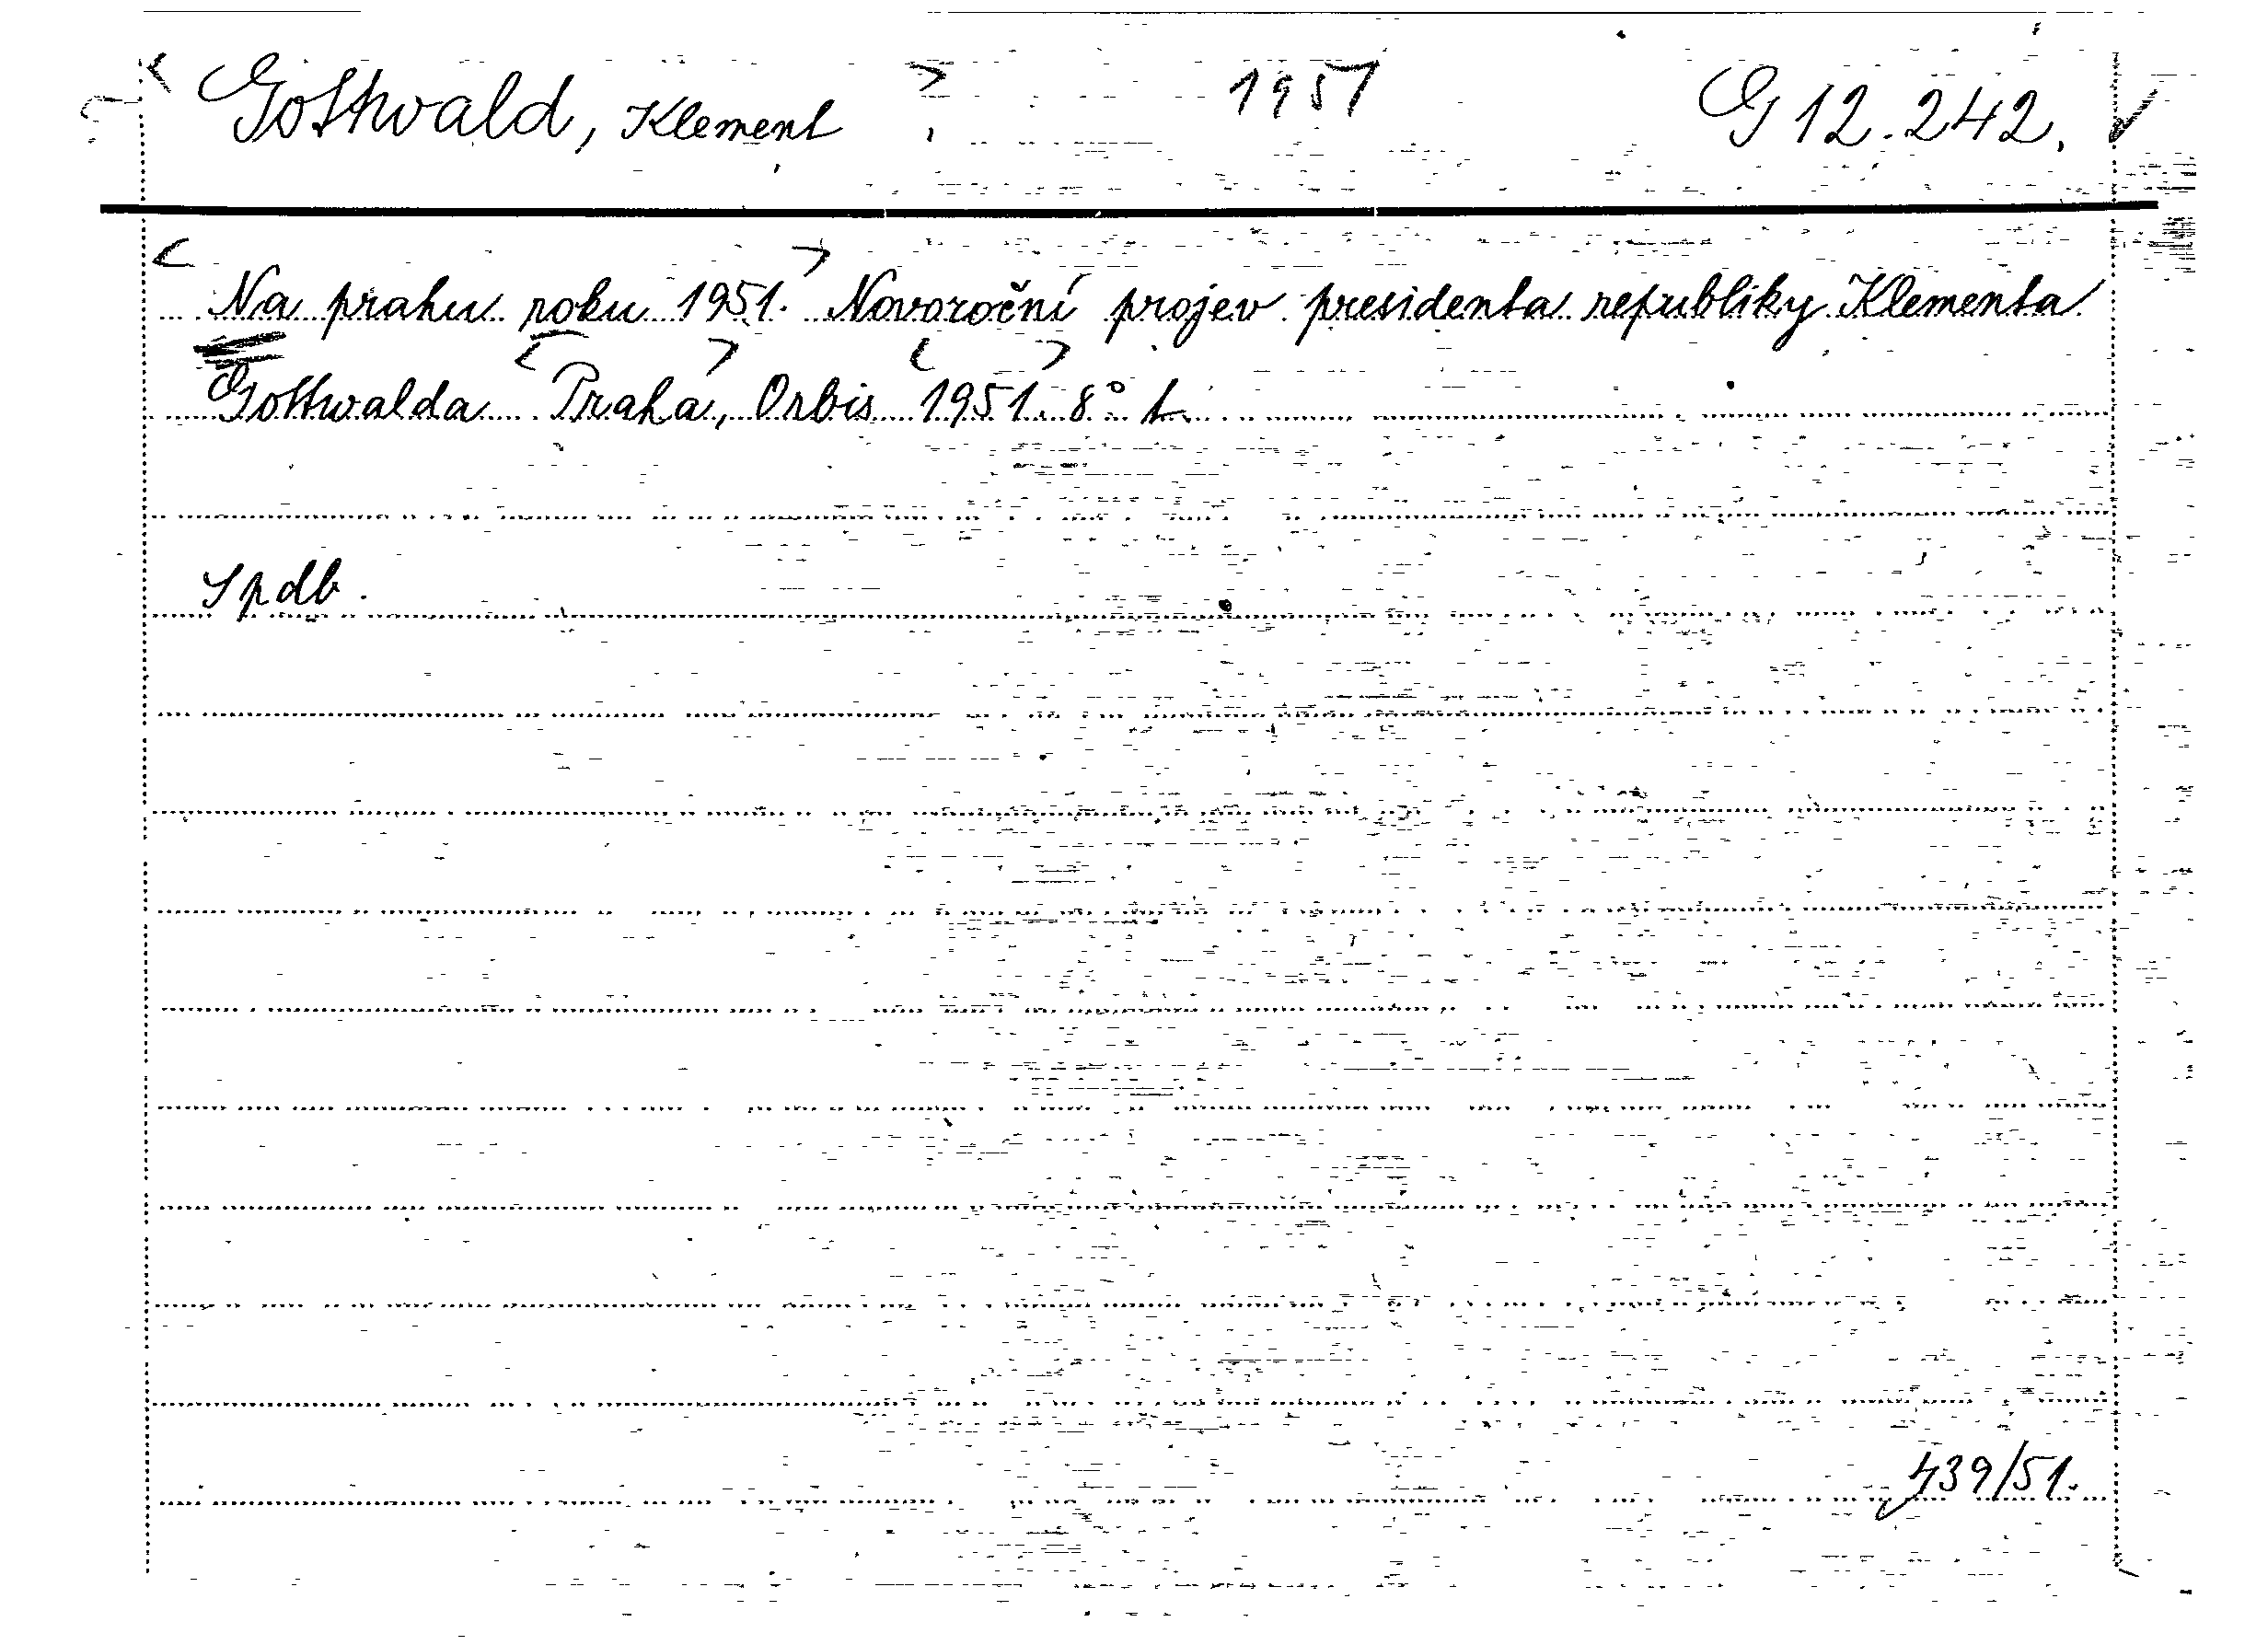 < Gottwald, Klement > 1951 G 12.242. ✓
< Na prahu roku 1951. > Novoroční projev presidenta republiky Klementa
Gottwalda < Praha >, Orbis < 1951 >. 8°
Spdb.
439/51.